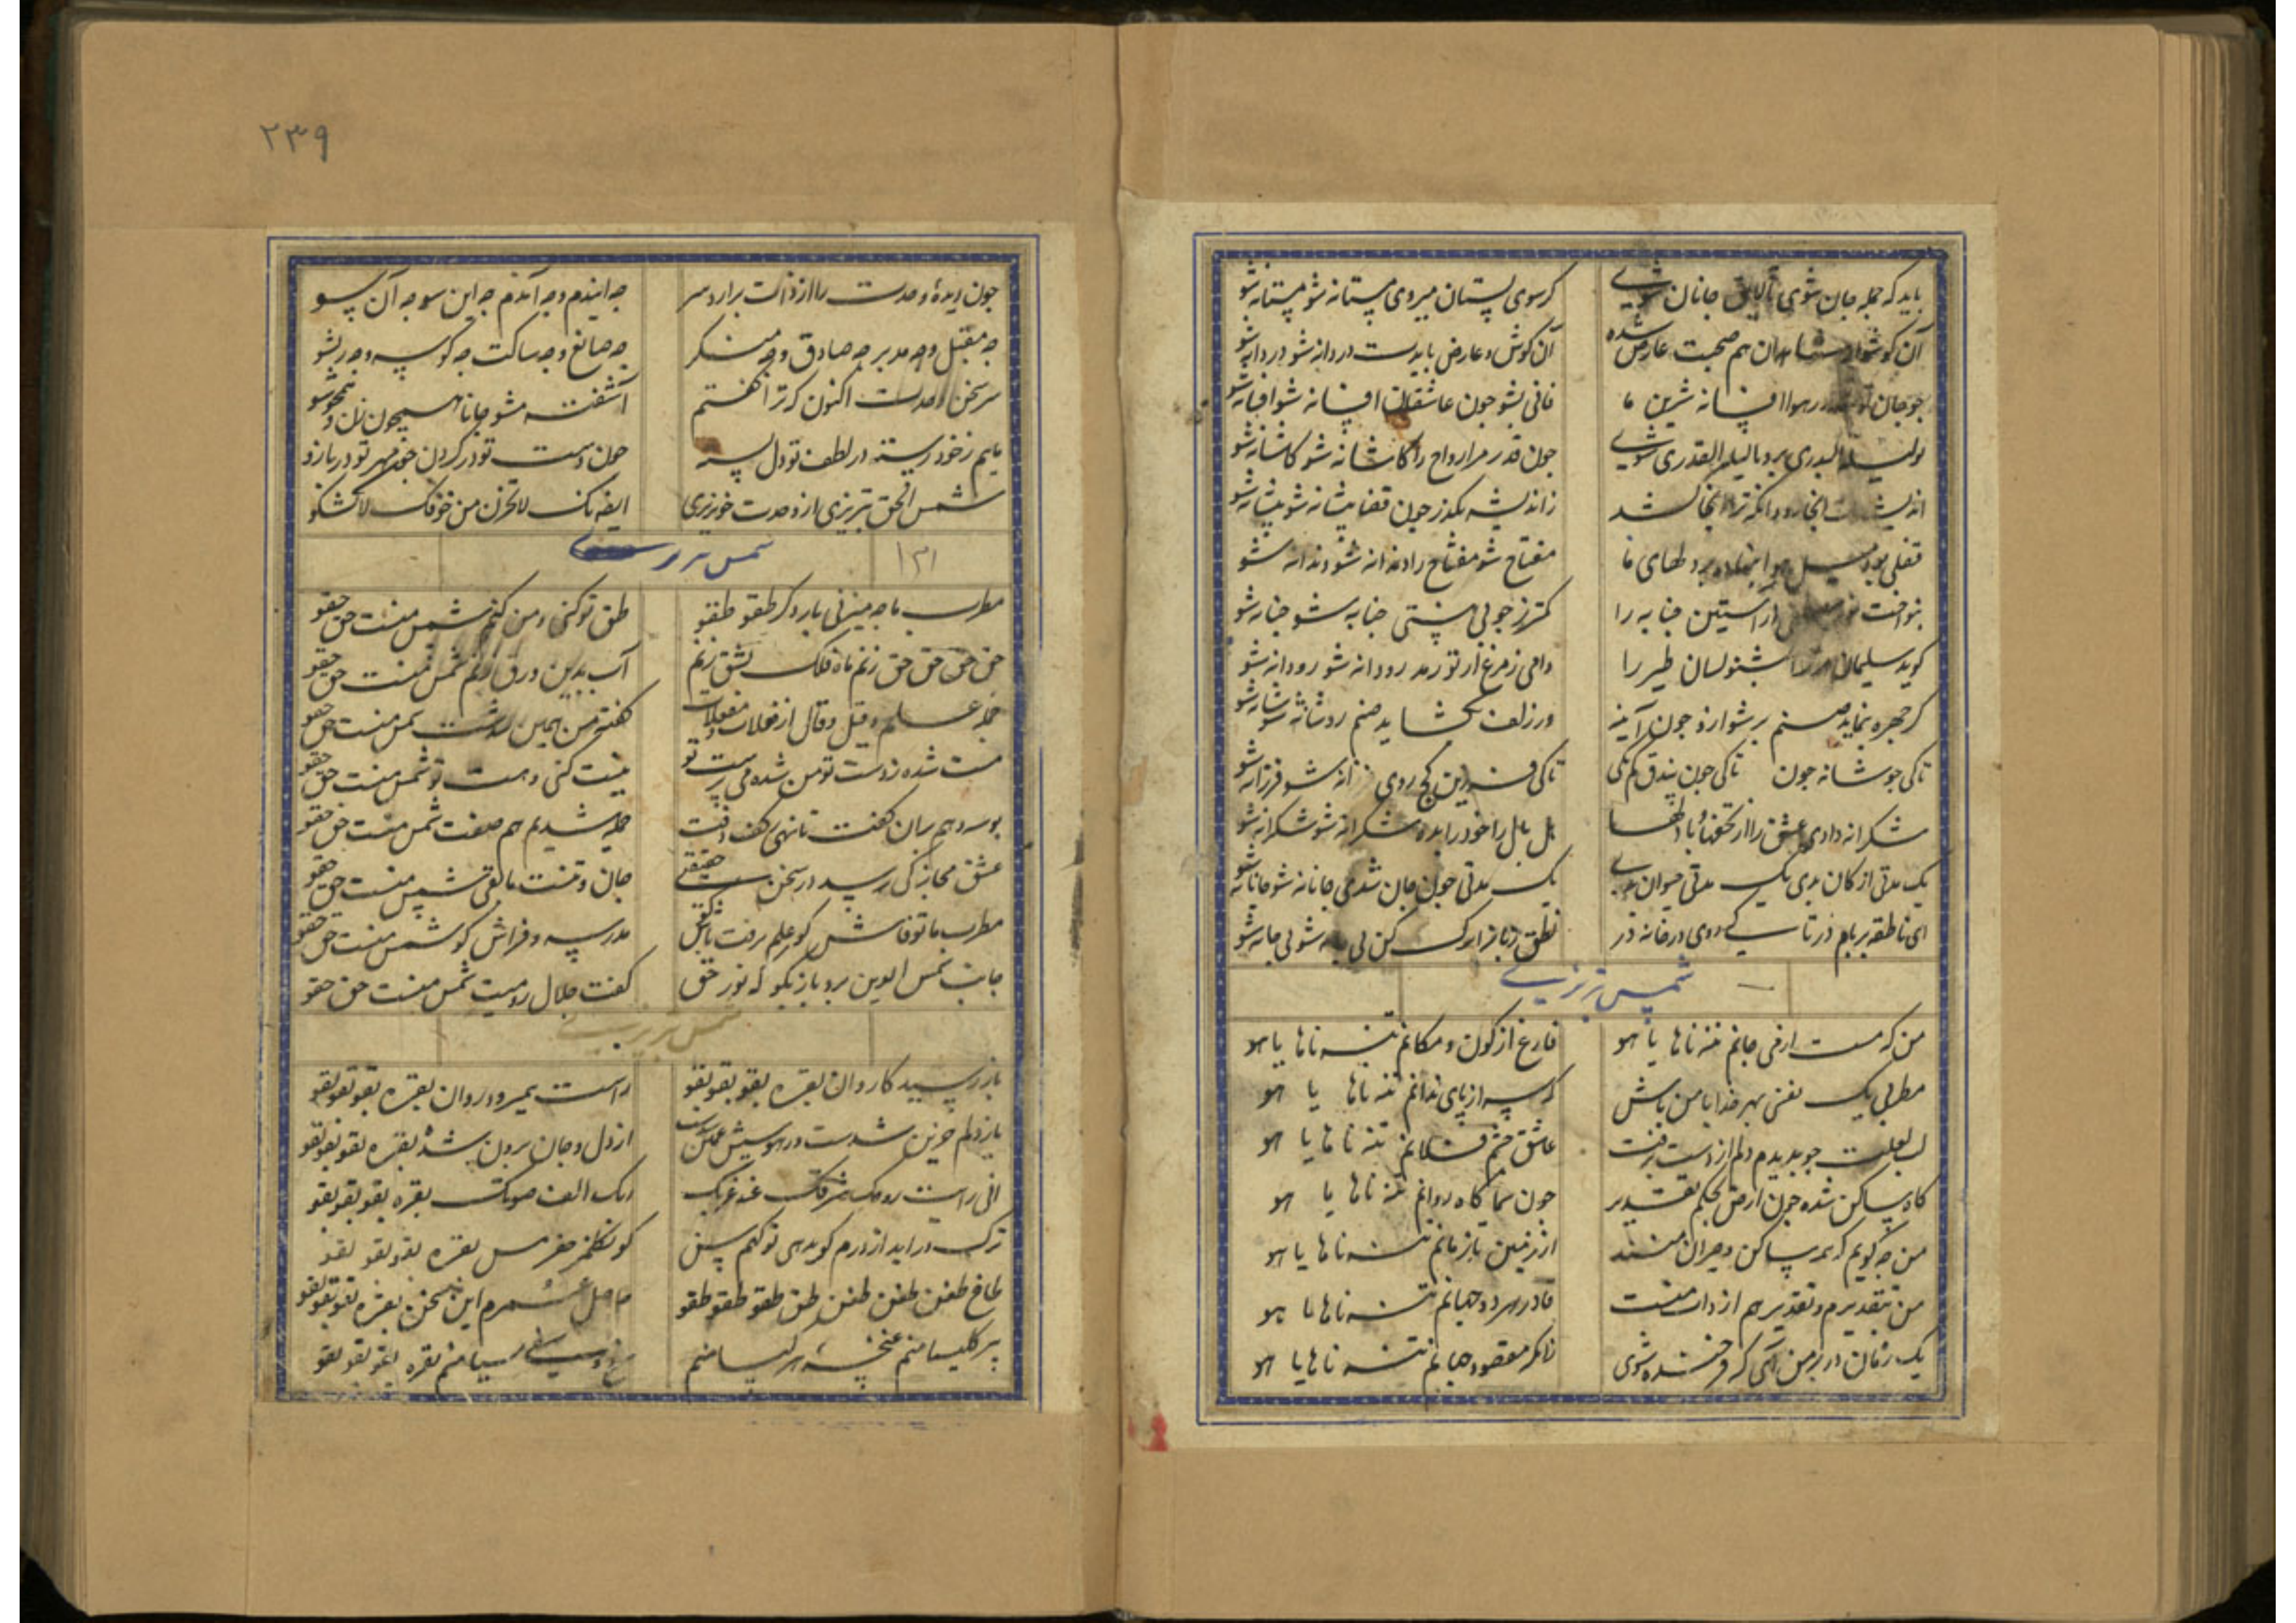 باید که جمله جان شوی تا لایق جانان شوی کر سوی مستان میروی مستانه شو مستانه شو
آن کوشوار شاهدان هم صحبت عارض شده آن کوش و عارض بایدت دردانه شو دردانه شو
چو جان تو شد در هوا افسانه شیرین ما فانی بشو چون عاشقان افسانه شو افسانه شو
تو لیلة القدری برو تا لیلة القدری شوی چون قدر مر ارواح را کاشانه شو کاشانه شو
اندیشه ات جایی رود وانکه ترا آنجا کشد زاندیشه بکذر چون قضا پیشانه شو پیشانه شو
قفلی بود میل و هوا بنهاده بر دلهای ما مفتاح شو مفتاح را دندانه شو دندانه شو
بنواخت نور مصطفی آن استن حنانه را کمتر ز چوبی نیستی حنانه شو حنانه شو
کوید سلیمان مر ترا بشنو لسان طیر را دامی و مرغ از تو رمد رو دانه شو رو دانه شو
کر چهره بنماید صنم پر شو ازو چون آینه ور زلف بکشاید صنم رو شانه شو رو شانه شو
تاکی دو شاخه چون تاکی چون بیدق کم تکی تاکی چو فرزین کج روی فرزانه شو فرزانه شو
شکرانه دادی عشق را از تحفها و مالها هل مال را خود را بده شکرانه شو شکرانه شو
یک مدتی ارکان بدی یک مدتی حیوان بدی یک مدتی چون جان شدی جانانه شو جانانه شو
ای ناطقه بر بام و در تاکی روی در خانه در نطق زبان را ترک کن بی چانه شو بی چانه شو
شمس تبریزی
من که مست از می جانم تننه ناها یا هو فارغ از کون و مکانم تننه ناها یا هو
مطربی یک نفسی بهر خدا با من باش که سر از پای ندانم تننه ناها یا هو
لب لعلت چو بدیدم دلم از دست برفت عاشق چشم فلانم تننه ناها یا هو
کاه ساکن شده چون ارض بحکم تقدیر چون سما کاه روانم تننه ناها یا هو
من چه کویم که همه ساکن و حیران منند از زمین تا بزمانم تننه ناها یا هو
من بتقدیرم و تقدیر هم از ذات منست قادر هر دو جهانم تننه ناها یا هو
یک زمان در بر من آی که فرخنده شوی زانکه مقصود جهانم تننه ناها یا هو
۲۳۹
چون دیده وحدت را از ذات برارد سر چه اینم و چه آنم چه این سو چه آن سو
چه مقبل و چه مدبر چه صادق و چه منکر چه صانع و چه ساکت چه کوسه و چه ریشو
سر سخن وحدت اکنون که ترا کفتم آشفته مشو جانا همچون زن
مایم ز خود رسته در لطف تو دل بسته چون دست تو در کردن
شمس الحق تبریزی از وحدت خونریزی لا تحزن من خوفک
۱۳۱ شمس تبریزی
مطرب ما چه میزنی بار دکر طقو طقو طق تو کنی و من کنم شمس منست حق حقو
حق حق حق حق زنم ماه فلک بشق زنم آب بدین ورق زنم شمس منست حق حقو
جمله علم و قیل و قال از فعلات و مفعلات کفته من همین بدست شمس منست حق حقو
مست شده ز دست تو من شده می پرست تو نیست کنی و هست تو شمس منست حق حقو
جمله شدیم هم صفت شمس منست حق حقو
عشق مجاز کی رسد در سخن حقیقتی جان و تنست مالقی شمس منست حق حقو
مطرب ما تو فاش کو علم برفت مدرسه و فراش کو شمس منست حق حقو
جانب شمس الدین برو باز بکو که نور حق کفت جلال رومیت شمس منست حق حقو
شمس تبریزی
باز رسید کاروان بقره بقو بقو بقو راست بمیر و در روان بقره بقو بقو بقو
باز دلم خونین شدست در هوسش از دل و جان برون شده بقره بقو بقو بقو
بقره بقو بقو بقو
ترک درآید از درم کوید هی تو کیم سن بقره بقو بقو بقو
طاخ طغن طغن طغن طق طقو طقو طقو حاصل عمرم این سخن بقره بقو بقو بقو
پیر کلیسا منم عیسا منم بقره بقو بقو بقو